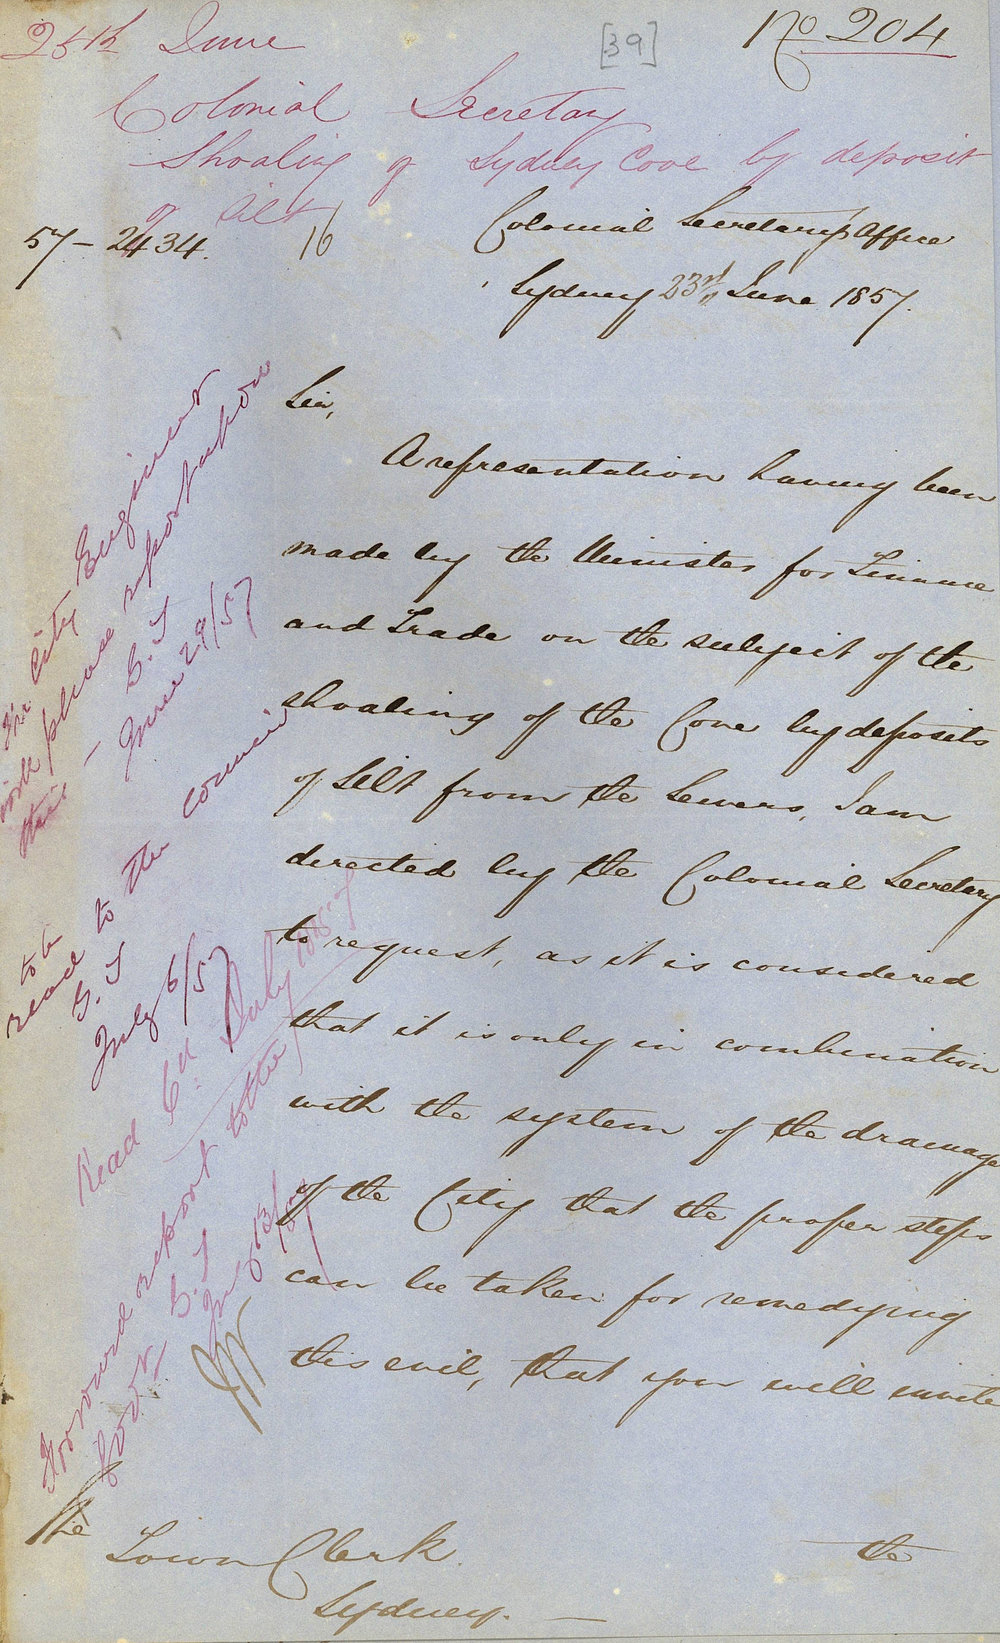 25th June
[39]
No 204
Colonial Secretary
Shoaling of Sydney Cove by deposit
of Silt
57-2434.
16
Colonial Secretary's Office
Sydney 23rd June 1857.
Sir,
A representation having been
made by the Minister for Finance
and Trade on the subject of the
shoaling of the Cove by deposits
of Silt from the Sewers, I am
directed by the Colonial Secretary
to request, as it is considered
that it is only in combination
with the system of the drainage
of the City that the proper steps
can be taken for remedying
this evil, that you will invite
the
The
Town Clerk
Sydney.
The City Engineer
will please report upon
this
June 29/57
to be
read to the council
July 6/57
Read Cd July
Forward report to the
July 13/57